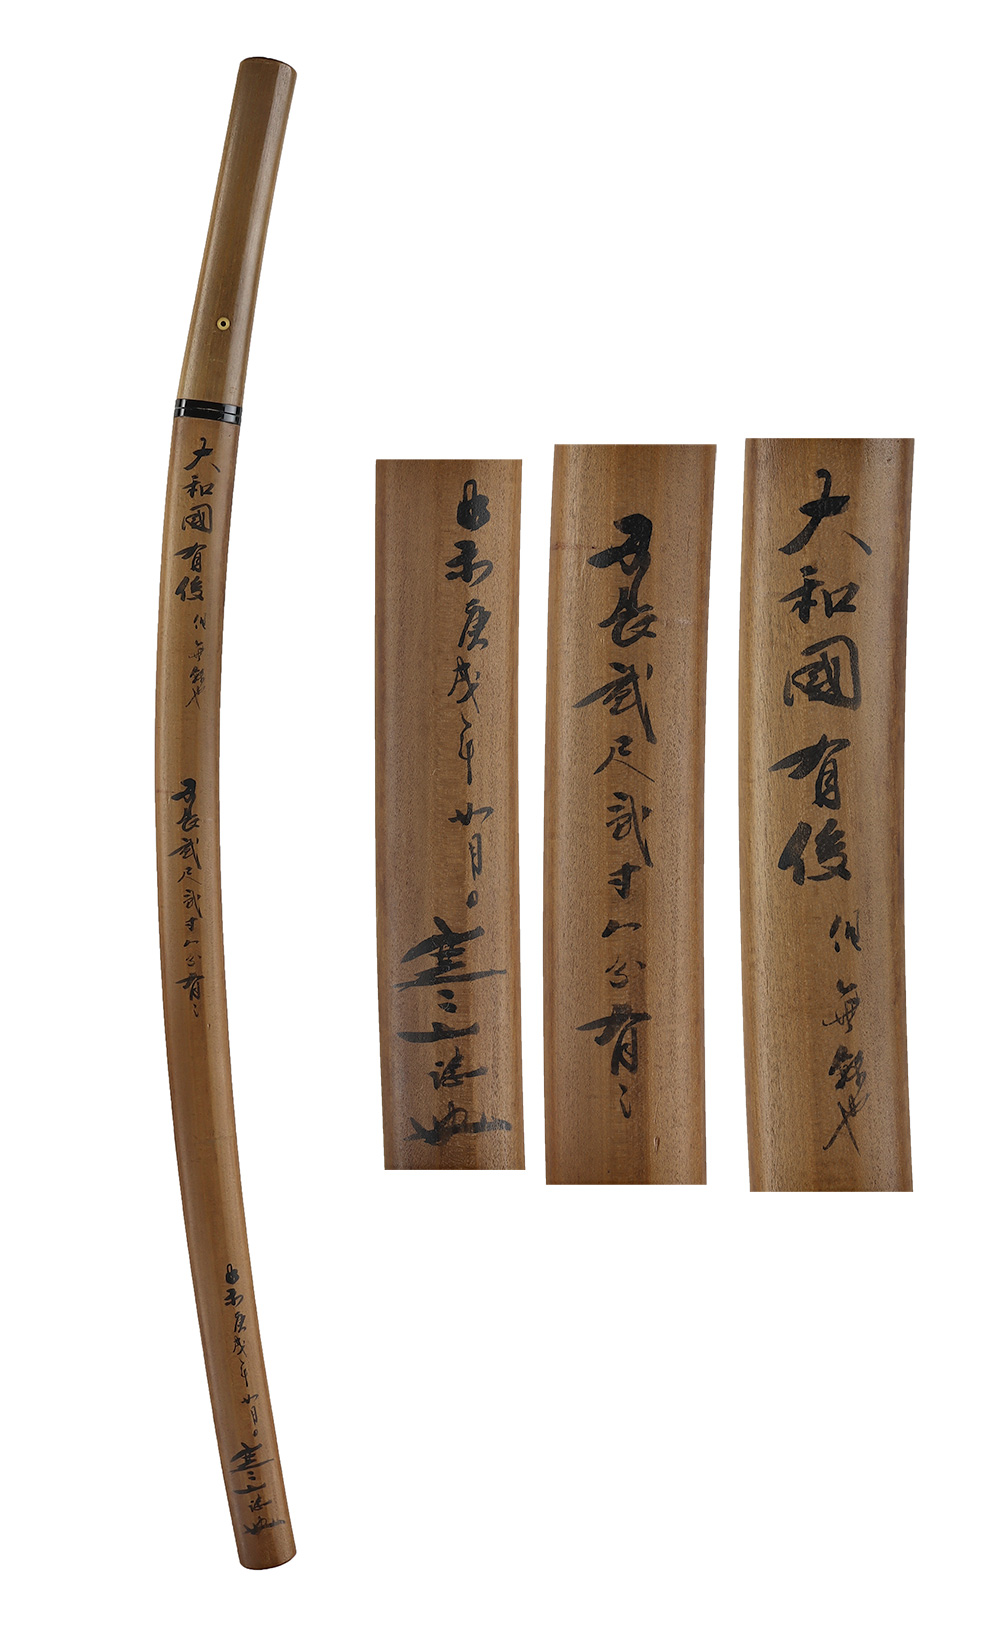 大和國有俊 但無銘也
刃長貳尺貳寸八分有之
昭和庚戌年如月日 寒山誌
大和國有俊 但無銘也
刃長貳尺貳寸八分有之
昭和庚戌年如月日 寒山誌